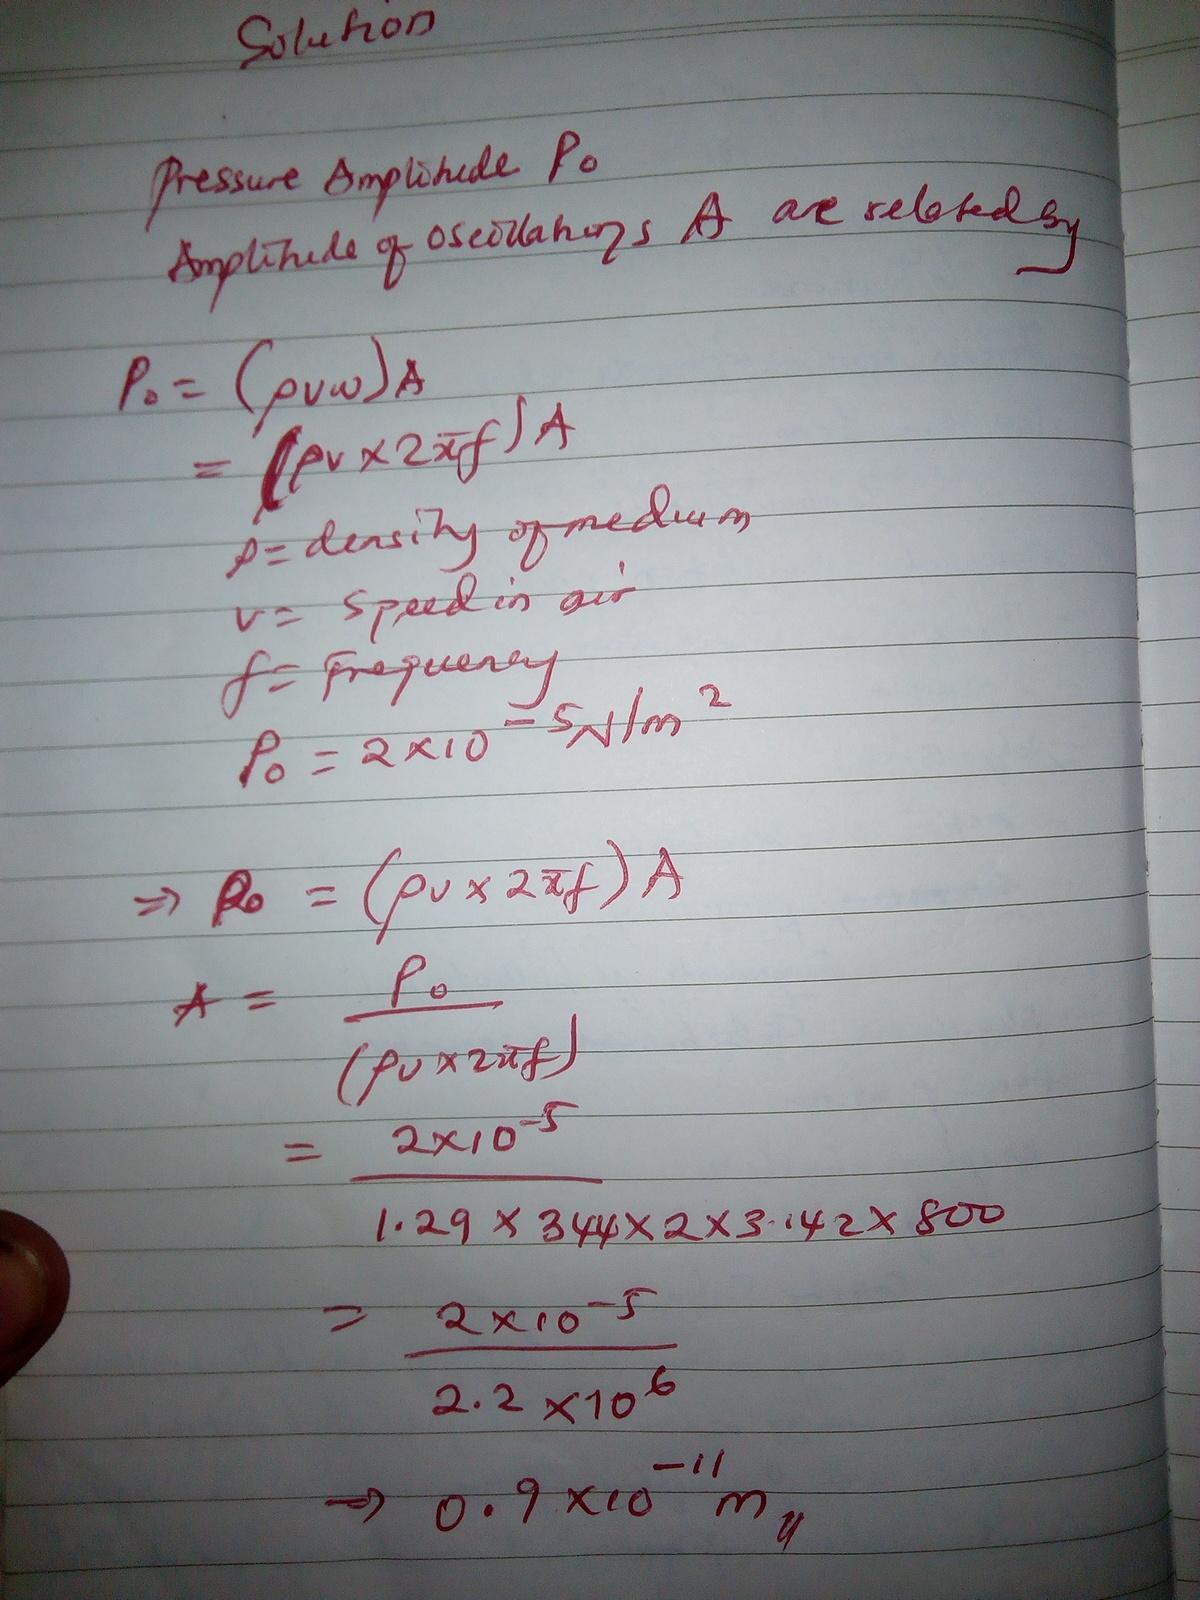 Solution
Pressure Amplitude P₀
Amplitude of oscillations A are related by
P₀ = (ρvω)A
= (ρv × 2πf)A
ρ = density of medium
v = speed in air
f = Frequency
P₀ = 2 × 10⁻⁵ N/m²
⇒ P₀ = (ρv × 2πf)A
A = P₀
(ρv × 2πf)
= 2 × 10⁻⁵
1.29 × 344 × 2 × 3.142 × 800
= 2 × 10⁻⁵
2.2 × 10⁶
⇒ 0.9 × 10⁻¹¹ m